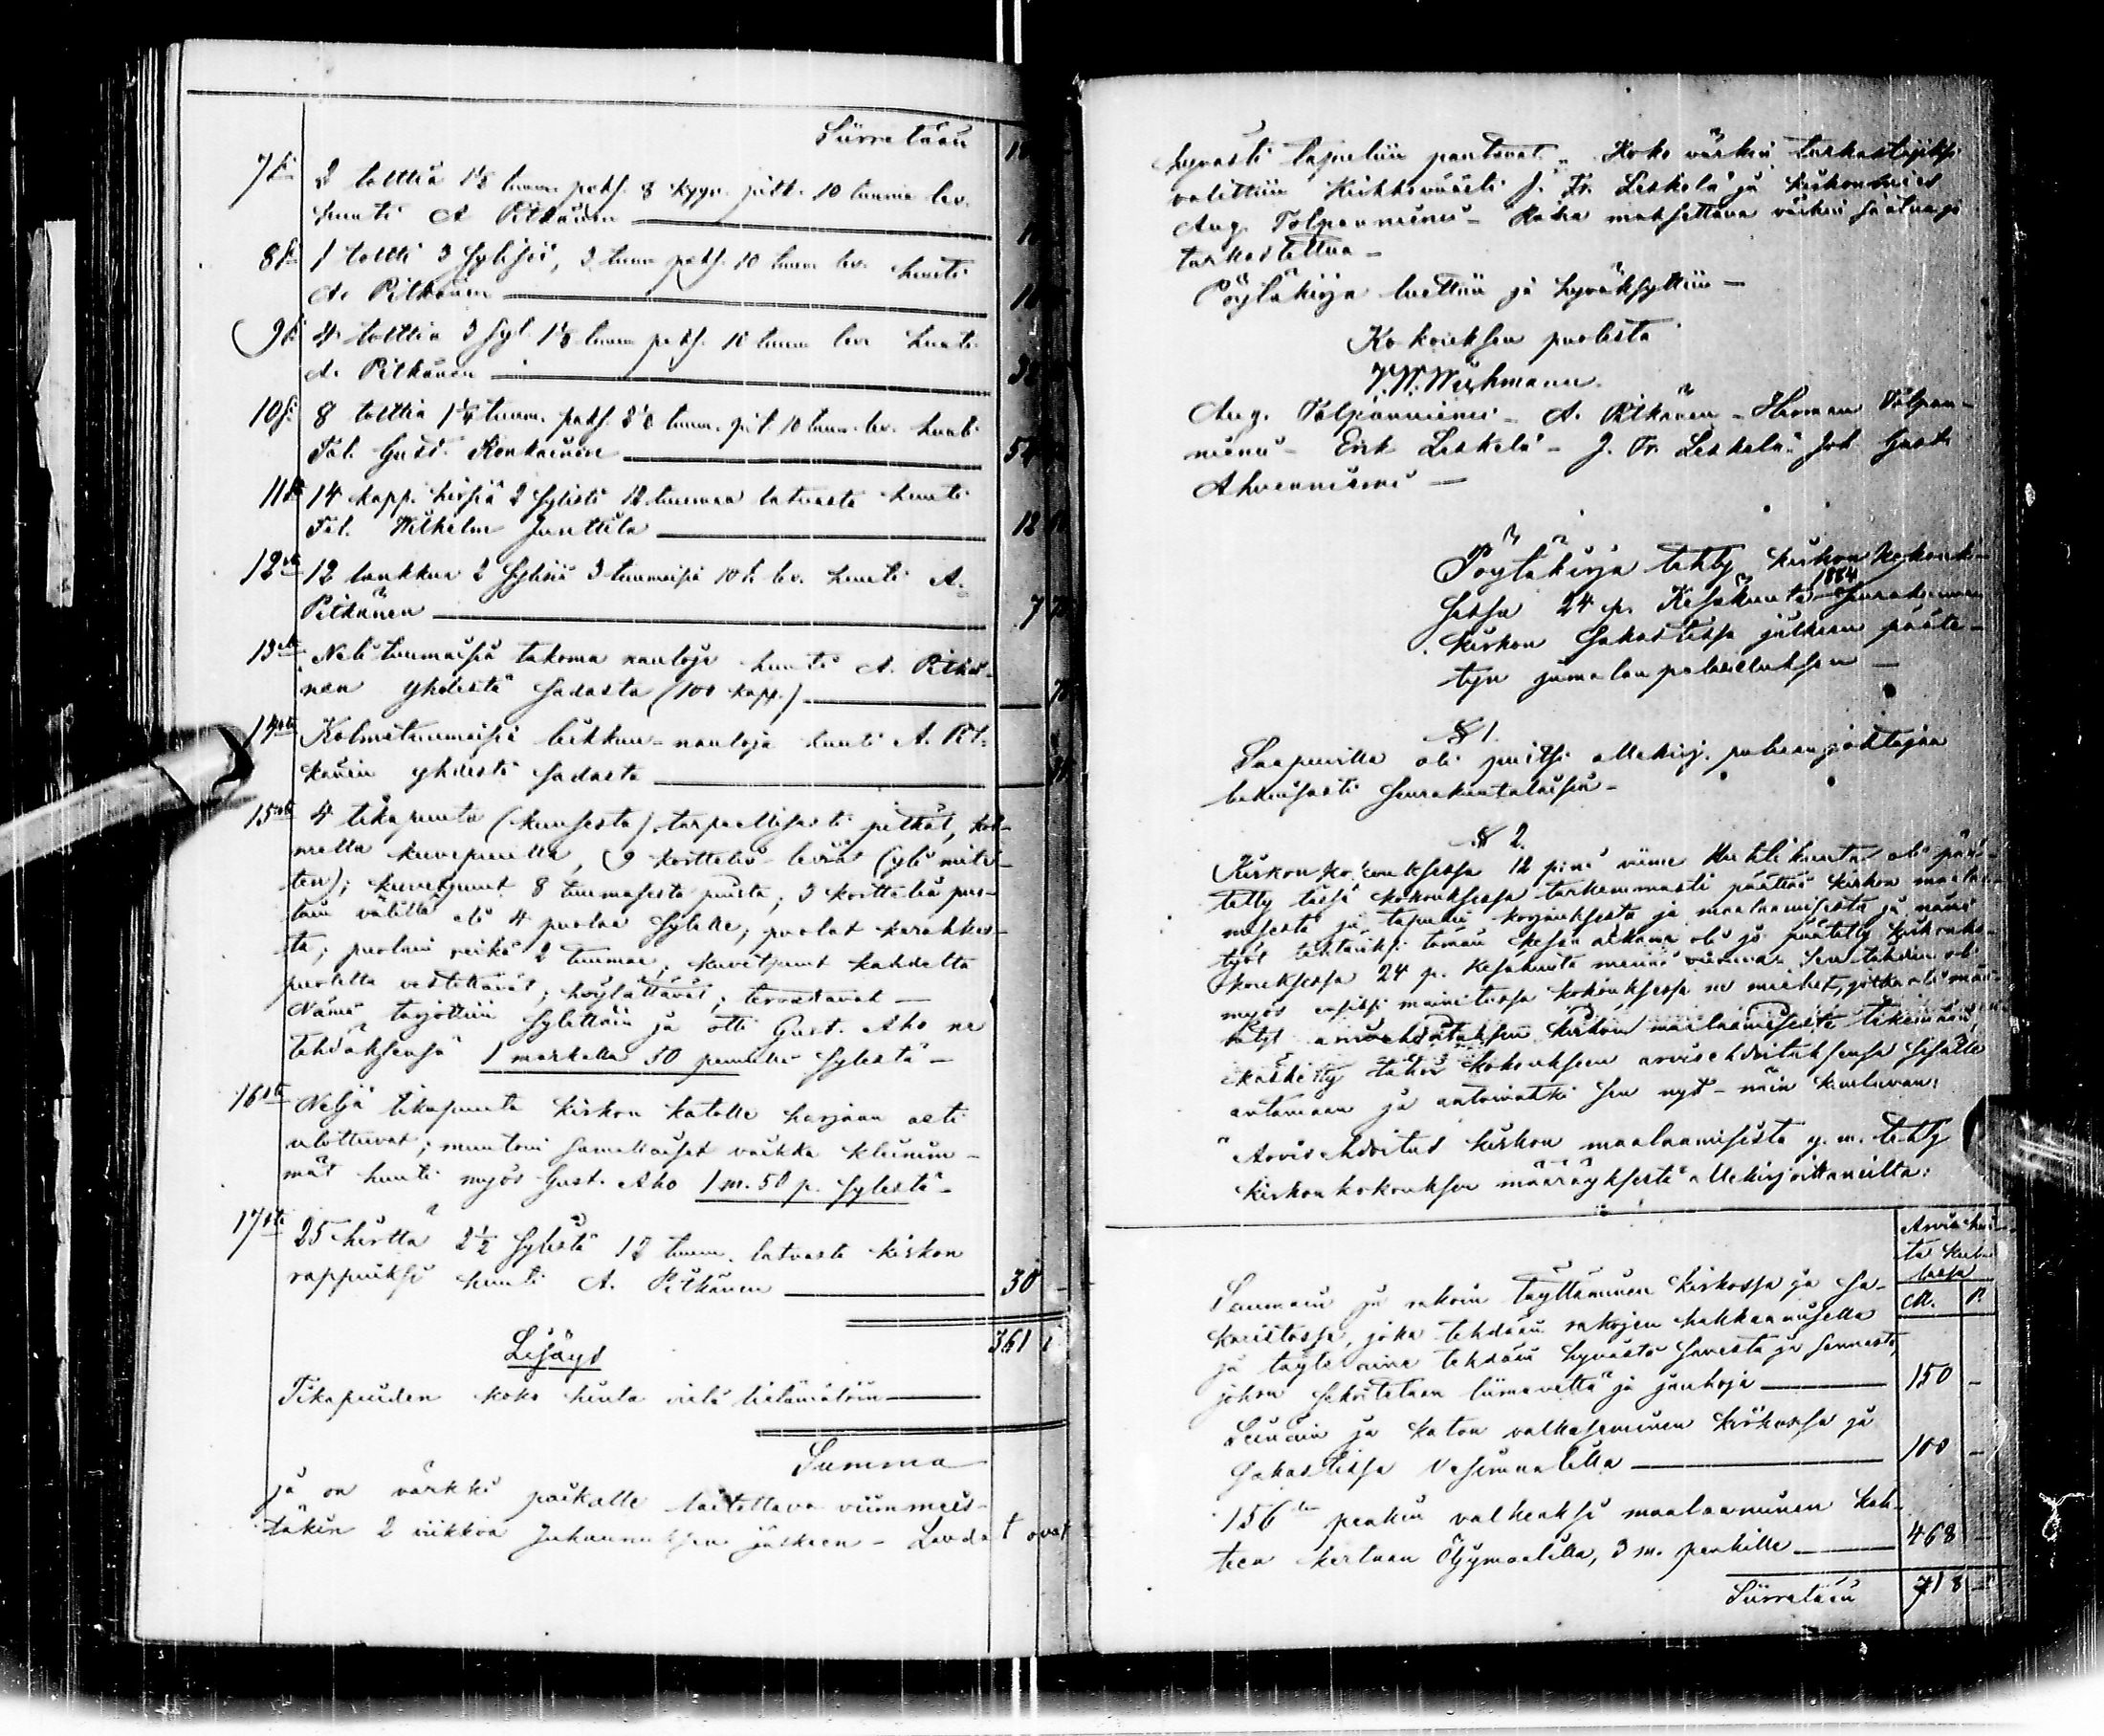 Siirretään
7ksi 2 tolttia 1½ tuum. paks. 8 kyyn. pitk. 10 tuumaa lev.
huuti A Pitkänen
8si 1 toltti 3 sylisiä, 3 tuum paks. 10 tuum lev. huuti
A. Pitkänen
9si 4 tolttia 3 syl. 1½ tuum paks. 10 tuum lev huuti
A. Pitkänen
10si 8 tolttia 1¼ tuum. paks. tuum. pit. 10 tuum. lev. huuti
Tal. Gust. Kenkäinen 54
11si 14 kapp. hirsiä 2 sylistä 12 tuumaa latvasta huuti
Tal. Wilhelm Junttila 12
12sta 12 lankkua 2 sylisiä 3 tuumaisia 10 t. lev. huuti A.
Pitkänen 7
13sta Neli tuumaisia takoma nauloja huuti A. Pitkä-
nen yhdestä sadasta (100 kapp.)
14sta Kolmituumaisia leikkuu-nauloja huuti A. Pit-
känen yhdestä sadasta
15sta 4 tikapuuta (kuusesta) tarpeellisesti pitkät, kol-
mella kuvepuulla, 9 korttelia leviät (yli mita-
ten); kuvetpuut 8 tuumasesta puusta; 3 korttelia puo-
lain välillä eli 4 puolaa sylelle; puolat karahkas-
ta; puolain reikä 2 tuumaa; kuvetpuut kahdelta
puolelta vestettävät; höylättävät; tervattavat —
Nämä tarjottiin sylittäin ja otti Gust. Aho ne
tehdäksensä 1 markalla 50 pennillä syleltä —
16sta Neljä tikapuuta kirkon katolle harjaan asti
ulottuvat; muutoin samallaiset vaikka kleinim-
mät huuti myös Gust. Aho 1 m. 50 p. syleltä —
17sta 25 hirttä 2½ sylestä 12 tuum. latvasta kirkon
rappuiksi huuti A. Pitkänen 30 —
361
Lisäys
Tikapuiden koko hinta vielä tietämätöin
Summa
ja on värkki paikalle laitettava viimmeis-
täkin 2 viikkoa Juhannuksen jälkeen — Laudat ovat
hyvästi tapuliin pantavat. Koko värkin tarkastajiksi
valittiin Kirkkoväärti J. Fr. Leskelä ja kirkonmies
Aug. Tolpanniemi — Raha maksettava värkin saatua ja
tarkastettua —
Pöytäkirja luettiin ja hyväksyttiin —
Kokouksen puolesta
Aug. Tolpanniemi — A. Pitkänen — Herman Tolpan-
niemi — Erik Leskelä — J. Fr. Leskelä Joh Gust.
Ahvenniemi —
Pöytäkirja tehty kirkon kokouk-
sessa 24 p. Kesäkuuta 1884 Seurakunnan
kirkon sakastissa julkeen pääte-
tyn jumalan palveluksen —
§ 1.
Saapuvilla oli paitsi allekirj. puheenjohtajaa
lukuisasti seurakuntalaisia —
§ 2.
Kirkon kokouksessa 12 p:nä viime Huhtikuuta oli pää-
tetty tässä kokouksessa tarkemmasti päättää kirkon maalaa-
misesta ja tapulin korjauksesta ja maalaamisesta ja nämä
työt tehtäviksi tämän kesän aikana oli jo päätetty kirkonko-
kouksessa 24 p. Kesäkuuta menneenä vuonna. Sentähden oli
myös ensiksi mainitussa kokouksessa ne miehet, jotka oli mää-
rätyt arvioehdotuksen kirkon maalaamisesta tekemään,
käsketty tähän kokoukseen arvioehdotuksensa sisälle
antamaan ja antoivatki sen nyt — näin kuuluvan:
"Arvioehdoitus kirkon maalaamisesta y. m. tehty
kirkonkokouksen määräyksestä allekirjoittaneilta:
M. P.
Saumain ja rakoin täyttäminen kirkossa ja sa-
karistossa, joka tehdään rakojen hakkaamisella
ja täyte aine tehdään hyvästä savesta ja sannasta,
johon sekoitetaan liimavettä ja jauhoja 150 —
Seinäin ja katon valkaseminen kirkossa ja
sakastissa vesimaalilla 100 —
156 penkin valkeaksi maalaaminen kah-
teen kertaan öljymaalilla, 3 m. penkille 468 —
Siirretään 718 —